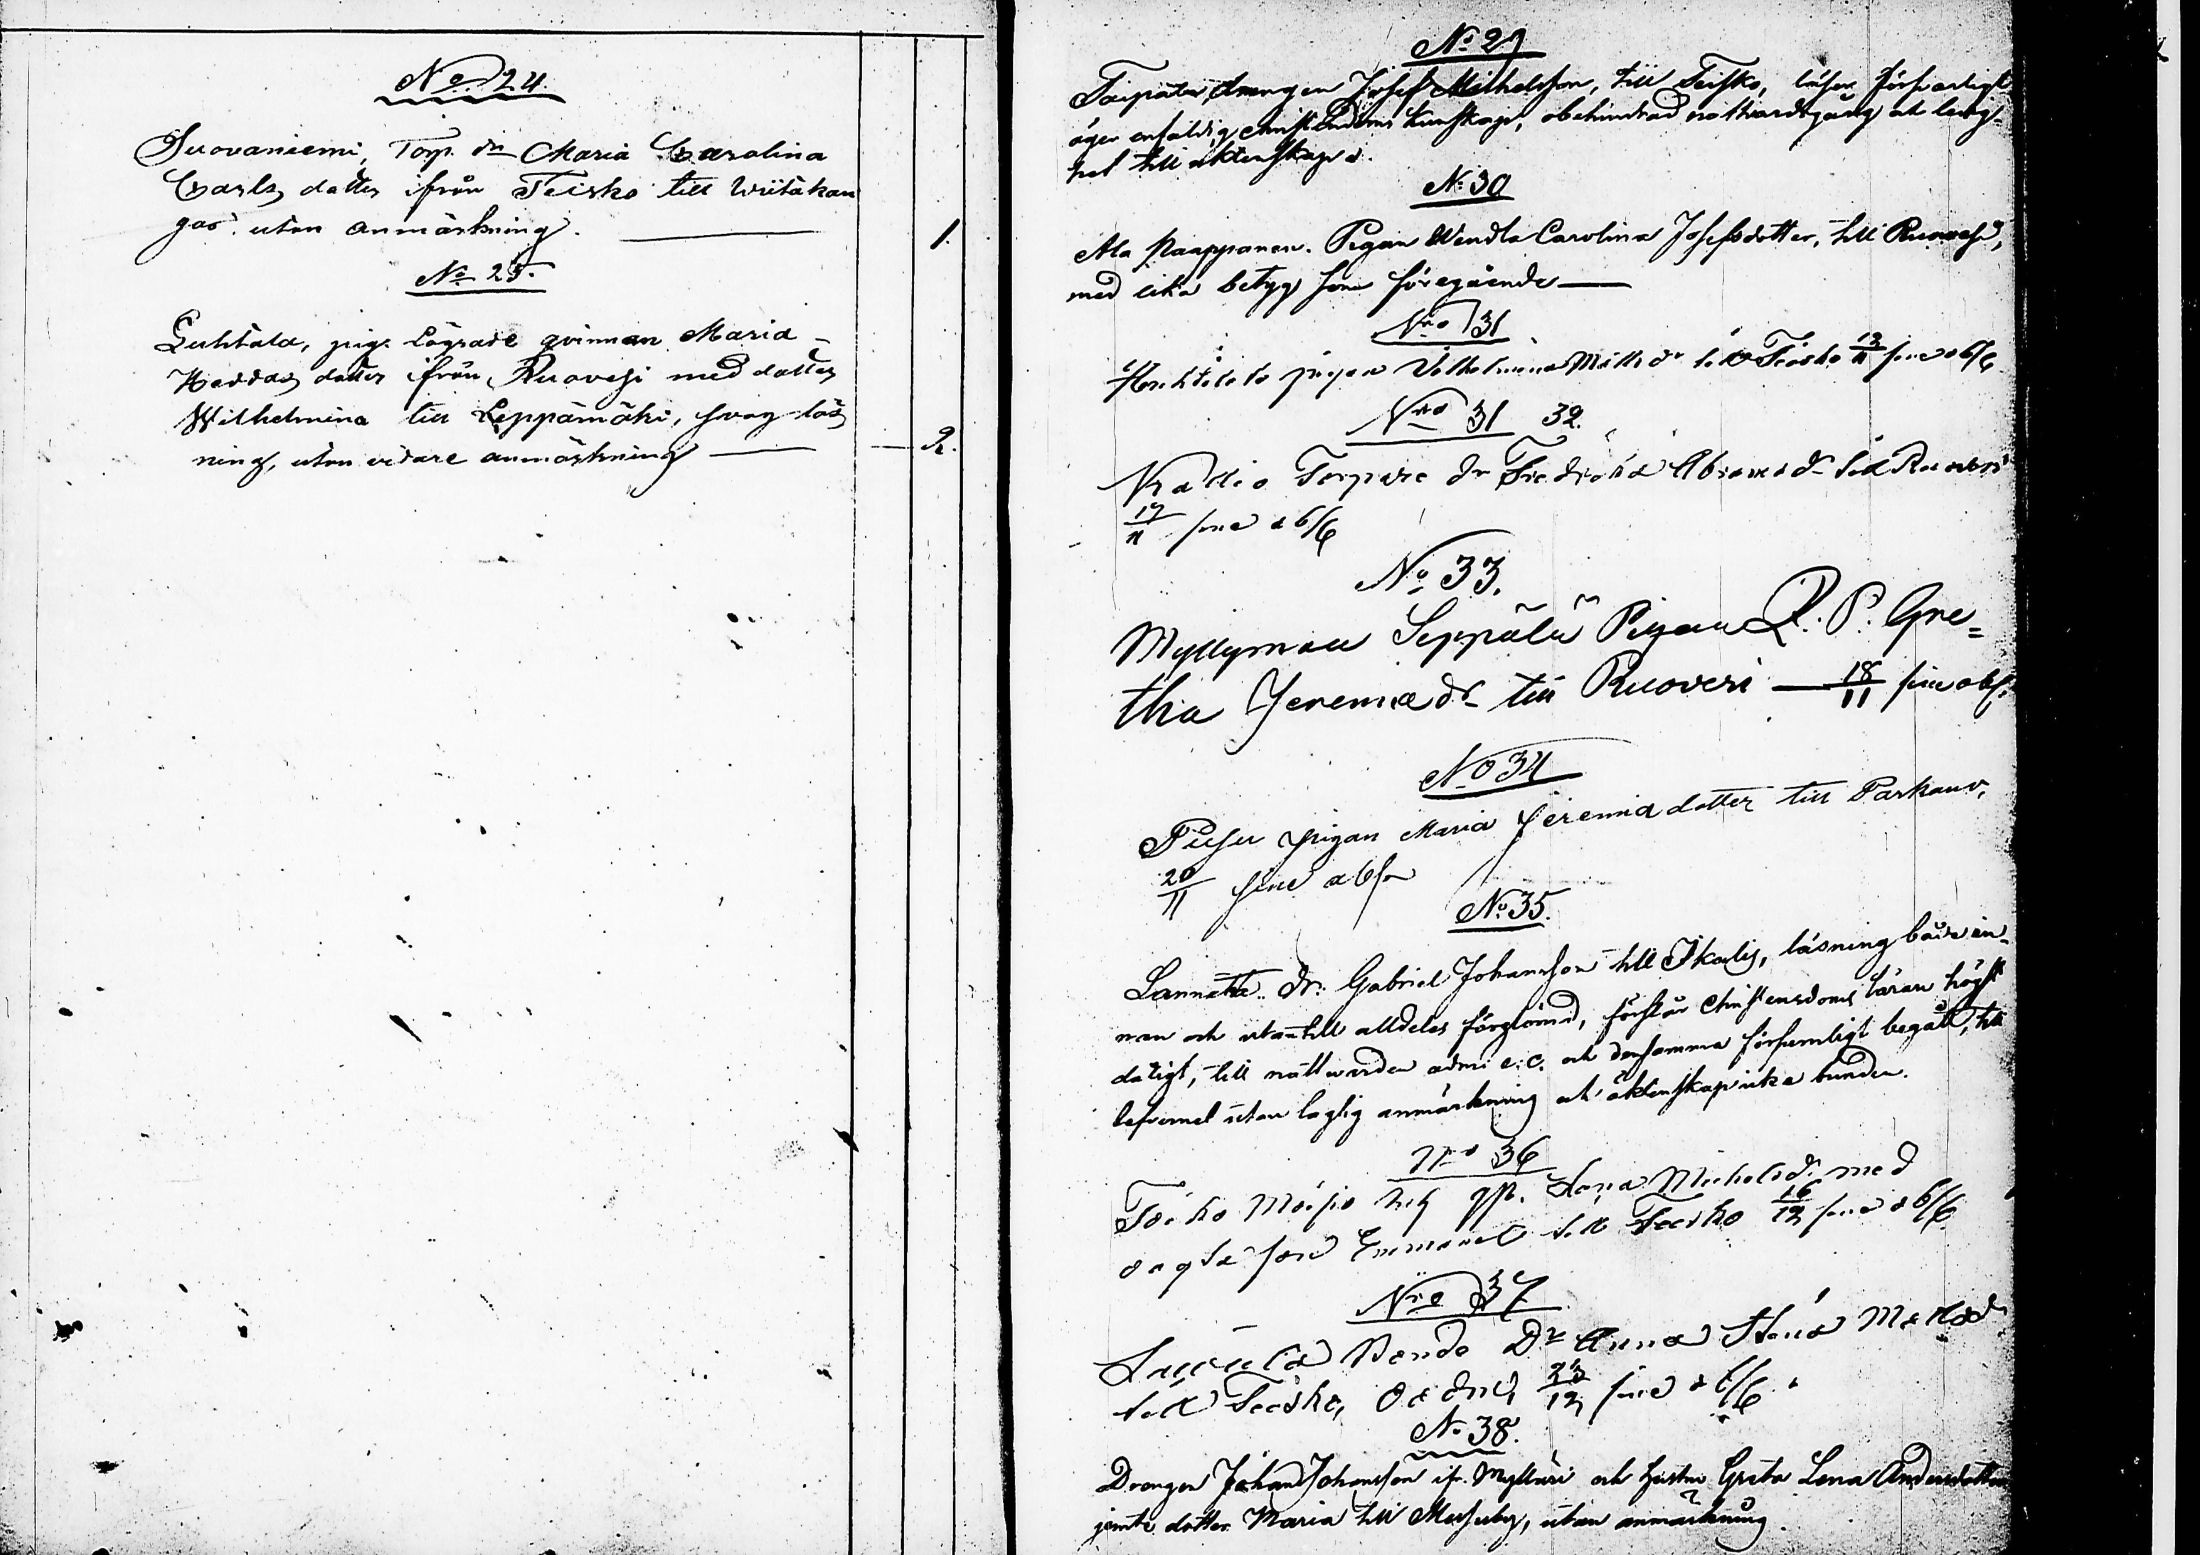 No 24.
Suovaniemi, Torp. dr Maria Carolina
Carls dotter ifrån Teisko till Wiitakan
gas. utan anmärkning. 1.
No 25.
Luhtala, pig. lägrade qvinnan Maria
Heddas dotter ifrån Ruovesi med dotter
Wilhelmina till Leppämäki, svag läs
ning, utan vidare anmärkning 2.
No 29
Drengen Josef Michelsson, till Teisko, läser försvarligt
äger enfaldig christendoms kunskap, obehindrad nattvardsgång och ledig-
het till äktenskap.
No 30
Ala Kaappanen. Pigan Wendla Carolina Josefsdotter, till Ruovesi,
med lika betyg som föregående
Nro 31
pigan Vilhelmina Matts dr till Teisko sine obs
Nro 31 32.
Torpare dr Fredrika Abrams dr till Ruovesi
17/11 sine obs
No 33.
Myllymaa Seppälä Pigan L. P. Gre=
tha Jeremiæ dr till Ruovesi 18/11 sine obs.
No 34
pigan Maria Jeremia dotter till Parkano,
20/11 sine obsr
No 35.
dr. Gabriel Johansson till Ikalis, läsning både in-
nan och utantill alldeles förglömd, förstår christendoms läran högst
dåligt, till nattvarden adm. e. c. och densamma försumligt begått, till
lefvernet utan laglig anmärkning och äktenskap icke bunden.
Nro 36
Michelsd. med
oägta son Emmanuel till Teisko 16/12 sine obs
Nro 37
Bonde Dr Anna Stina Mattsd.
till Teisko, 23/12 sine obs.
No 38.
Drengen Johan Johansson ifr. Mylläri och hustru Greta Lena Andersdotter
jemte dotter Maria till Messuby, utan anmärkning